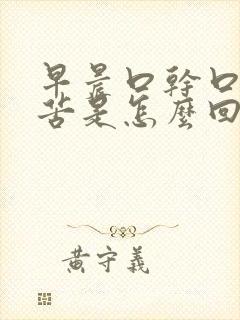 早晨口幹口
苦是怎麼回
黃守義